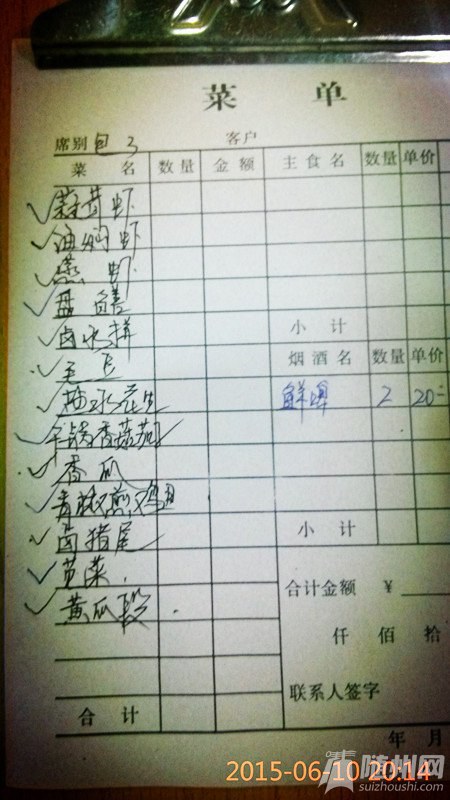 菜 单
席别 包 3 客户
菜 名 数量 金额 主食名 数量 单价
蒜茸虾
油焖虾
蒸 虾
盘 鳝
卤水拼 小 计
烟酒名 数量 单价
花生 鲜啤 2 20
干锅香菇
香瓜
青椒煎鸡蛋
卤猪尾 小 计
苋菜
合计金额 ¥
黄瓜段
仟 佰 拾
联系人签字
合 计
年 月
2015-06-10 20:14
随州网
suizhoushi.com